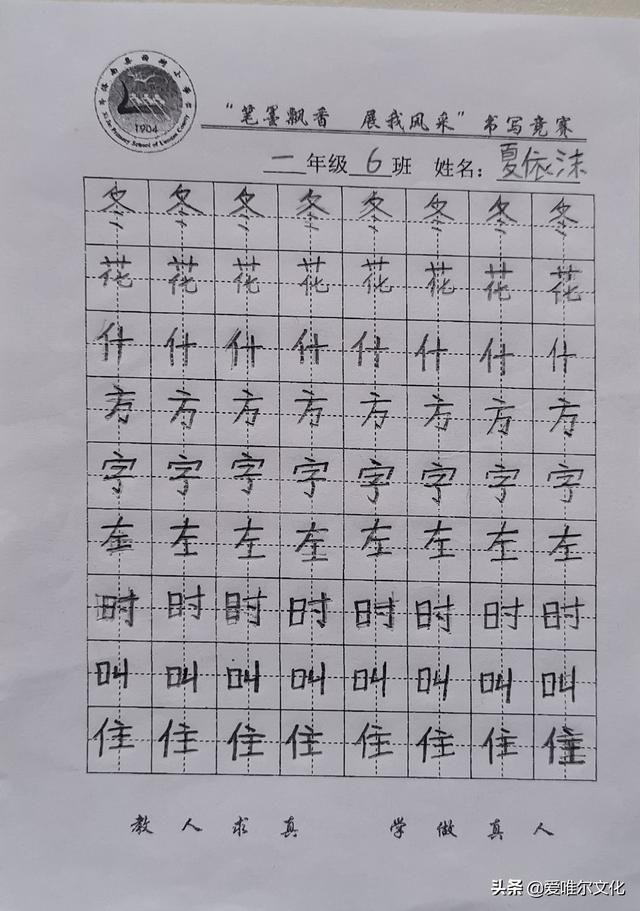 1904
"笔墨飘香 展我风采"书写竞赛
一年级6班 姓名：夏依沫
冬冬冬冬冬冬冬冬
花花花花花花花花
什什什什什什什什
方方方方方方方方
字字字字字字字字
左左左左左左左左
时时时时时时时时
叫叫叫叫叫叫叫叫
住住住住住住住住
教人求真 学做真人
头条 @爱唯尔文化